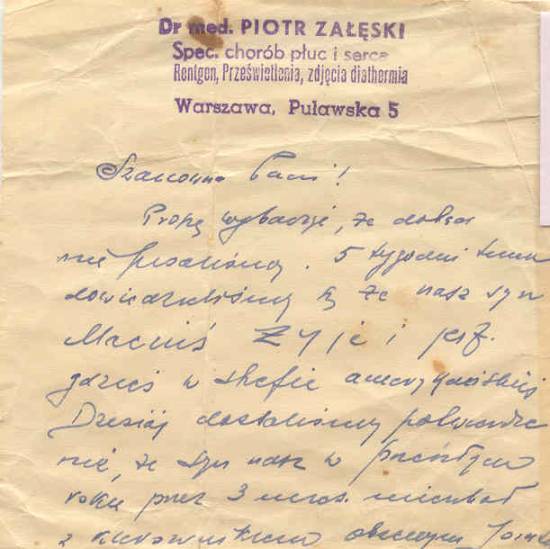 Dr med. PIOTR ZAŁĘSKI
Spec. chorób płuc i serca
Rentgen, Prześwietlenia, zdjęcia diathermia
Warszawa, Puławska 5
Szanowna Pani!
Proszę wybaczyć, że dotąd
nie pisaliśmy. 5 tygodni temu
dowiedzieliśmy się że nasz syn
Maciuś ŻYJE i jest
gdzieś w strefie amerykańskiej
Dzisiaj dostaliśmy potwierdze
nie, że syn nasz w
roku przez 3 mies. mieszkał
z obecnym